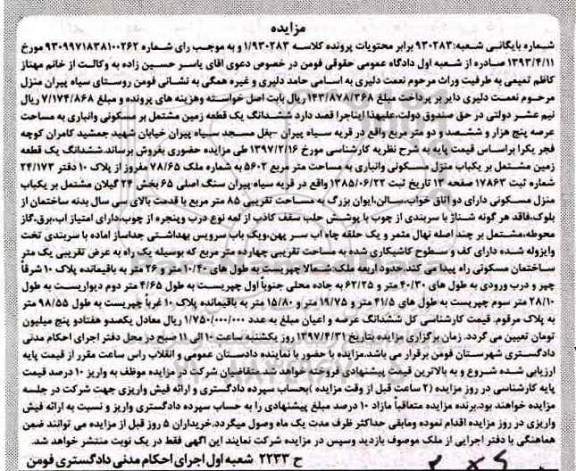 مزایده
شماره بایگانی شعبه:۹۳۰۲۸۳ برابر محتویات پرونده کلاسه ۱/۹۳۰۲۸۳ و به موجب رای شماره ۹۳۰۹۹۷۱۸۳۸۱۰۰۲۶۲ مورخ
۱۳۹۳/۴/۱۱ صادره از شعبه اول دادگاه عمومی حقوقی فومن در خصوص دعوی اقای یاسر حسین زاده به وکالت از خانم مهناز
کاظم تمیمی به طرفیت وراث مرحوم نعمت دلیری به اسامی حامد دلیری و غیره همگی به نشانی فومن روستای سیاه پیران منزل
مرحوم نعمت دلیری دایر بر پرداخت مبلغ ۱۴۳/۸۷۸/۳۶۸ ریال بابت اصل خواسته وهزینه های پرونده و مبلغ ۷/۱۷۴/۸۶۸ ریال
نیم عشر دولتی در حق صندوق دولت،علیهذا اینجرا قصد دارد ششدانگ یک قطعه زمین مشتمل بر مسکونی وانباری به مساحت
عرصه پنج هزار و ششصد و دو متر مربع واقع در قریه سیاه پیران -بغل مسجد -سیاه پیران خیابان شهید جمشید کامران کوچه
فجر یکرا براساس قیمت پایه به شرح نظریه کارشناسی مورخ ۱۳۹۷/۲/۱۶ طی مزایده حضوری بفروش برساند.ششدانگ یک قطعه
زمین مشتمل بر یکباب منزل مسکونی وانباری به مساحت متر مربع ۵۶۰۲ به شماره ملک ۷۸/۶۵ مفروز از پلاک ۱۰ دفتر ۲۴/۱۷۳
شماره ثبت ۱۷۸۶۳ صفحه ۱۳ تاریخ ثبت ۱۳۸۵/۰۶/۲۲ واقع در قریه سیاه پیران سنگ اصلی ۶۵ بخش ۲۴ گیلان مشتمل بر یکباب
منزل مسکونی دارای دو اتاق خواب،سالن،ایوان بزرگ به مساحت تقریبی ۸۵ متر مربع با قدمت بالای سی سال بدنه ساختمان از
بلوک،فاقد هر گونه شناژ با سربندی از چوب با پوشش حلب سقف کاذب از لمه نوع درب وپنجره از چوب،دارای امتیاز اب،برق،گاز
محوطه،مشتمل بر چند اصله نهال مثمر و یک حلقه چاه اب سر پهن،ویک باب سرویس بهداشتی جداساز اماده با سربندی تخت
وایزوله شده دارای کف و سطوح کاشیکاری شده به مساحت تقریبی چهارده متر مربع که بوسیله یک راه به عرض تقریبی یک متر
ساختمان مسکونی راه پیدا می کند.حدود اربعه ملک:شمالا چپرست به طول های ۱۰/۴۰ متر و ۲۶ متر به باقیمانده پلاک ۱۰ شرقا
چپر و درب ورودی به طول های ۴۰/۳۰ متر و ۶۲/۲۵ به جاده محلی جنوبا اول چپرست به طول ۴/۶۵ متر دوم دیواریست به طول
۲۸/۱۰ متر سوم چپرست به طول های ۴۱/۵ متر و ۱۹/۷۵ متر و ۱۵/۸۰ متر به باقیمانده پلاک ۱۰ غربا چپرست به طول ۹۸/۵۵ متر
به پلاک مرقوم. قیمت کارشناسی کل ششدانگ عرصه و اعیان مبلغ به عدد ۱/۷۵۰/۰۰۰/۰۰۰ ریال معادل یکصدو هفتادو پنج میلیون
تومان تعیین می گردد. زمان برگزاری مزایده بتاریخ ۱۳۹۷/۴/۳۱ روز یکشنبه ساعت ۱۰ الی ۱۱ صبح در محل دفتر اجرای احکام مدنی
دادگستری شهرستان فومن برقرار می باشد.مزایده با حضور با نماینده دادستان عمومی و انقلاب راس ساعت مقرر از قیمت پایه
ارزیابی شده شروع و به بالاترین قیمت پیشنهادی فروخته خواهد شد.متقاضیان شرکت در مزایده موظف به واریز ۱۰ درصد قیمت
پایه کارشناسی در روز مزایده (۲ ساعت قبل از وقت مزایده )بحساب سپرده دادگستری و ارائه فیش واریزی جهت شرکت در جلسه
مزایده خواهند بود.برنده مزایده متعاقباً مازاد ۱۰ درصد مبلغ پیشنهادی را به حساب سپرده دادگستری واریز و نسبت به ارائه فیش
واریزی در روز مزایده اقدام نموده ومابقی حداکثر ظرف مدت یک ماه وصول میگردد.خریداران ۵ روز قبل از مزایده می توانند ضمن
هماهنگی با دفتر اجرایی از ملک موصوف بازدید وسپس در مزایده شرکت نمایند این آگهی فقط در یک نوبت منتشر خواهد شد.
ح ۲۲۳۳ شعبه اول اجرای احکام مدنی دادگستری فومن